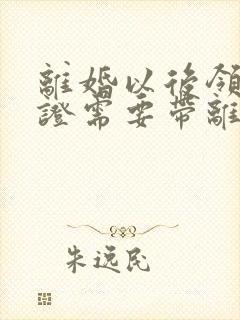 離婚以後領
證需要帶離
朱逸民